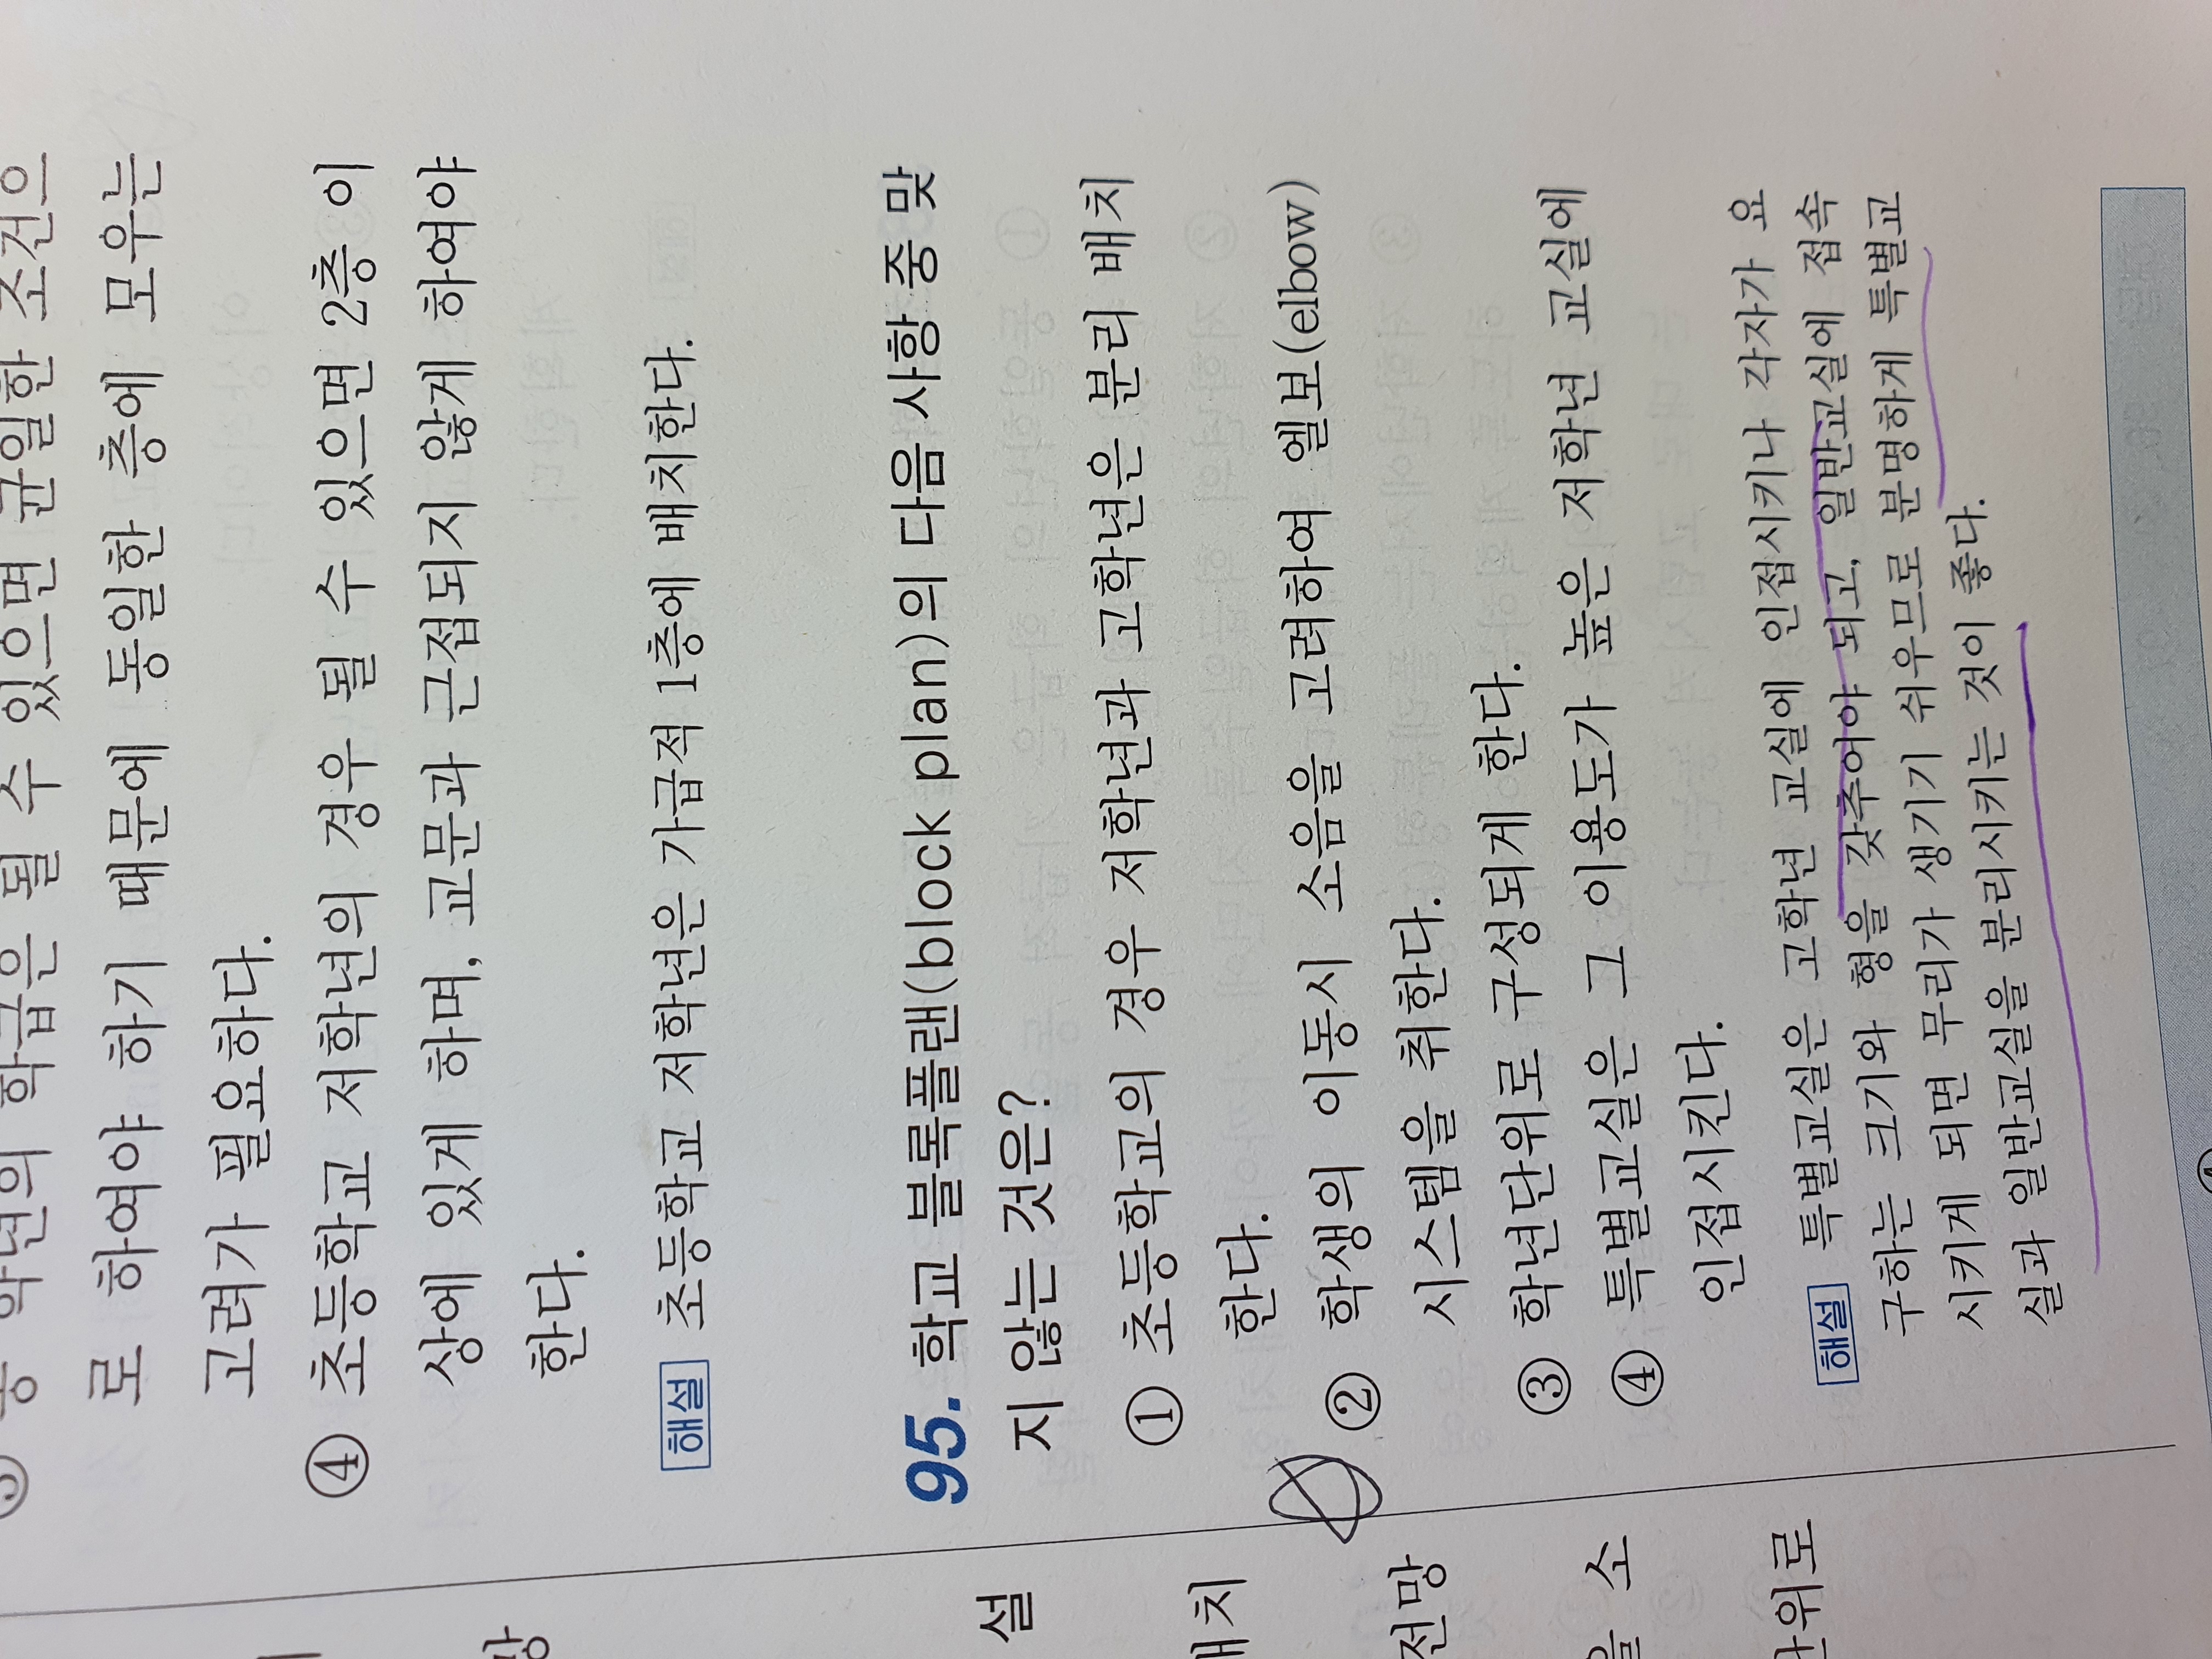 학년의 학급은 될 수 있으면 균일한 조건으
로 하여야 하기 때문에 동일한 층에 모우는
고려가 필요하다.
④ 초등학교 저학년의 경우 될 수 있으면 2층 이
상에 있게 하며, 교문과 근접되지 않게 하여야
한다.
해설 초등학교 저학년은 가급적 1층에 배치한다.
95. 학교 블록플랜(block plan)의 다음 사항 중 맞
지 않는 것은?
① 초등학교의 경우 저학년과 고학년은 분리 배치
한다.
② 학생의 이동시 소음을 고려하여 엘보(elbow)
시스템을 취한다.
③ 학년단위로 구성되게 한다.
④ 특별교실은 그 이용도가 높은 저학년 교실에
인접시킨다.
해설 특별교실은 고학년 교실에 인접시키나 각자가 요
구하는 크기와 형을 갖추어야 되고, 일반교실에 접속
시키게 되면 무리가 생기기 쉬우므로 분명하게 특별교
실과 일반교실을 분리시키는 것이 좋다.
설
배치
전망
을 소
단위로